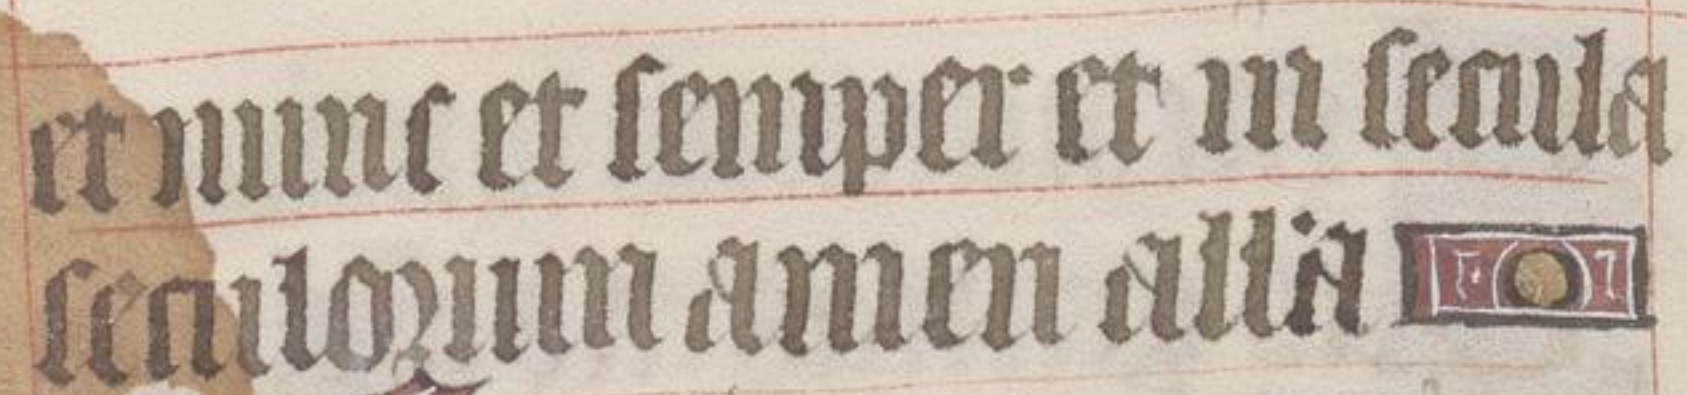 et nunc et semper et in secula
seculorum amen alla